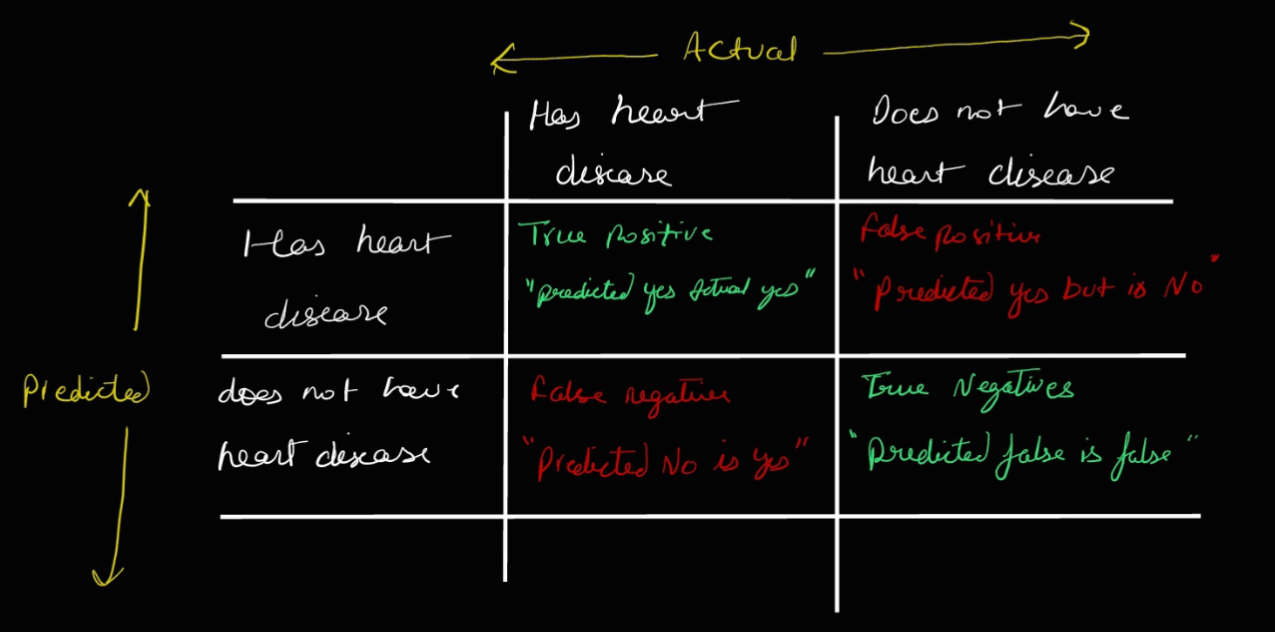 Actual
Has heart
disease
Does not have
heart disease
Has heart
disease
True positive
"predicted yes actual yes"
False positive
"Predicted yes but is No"
Predicted
does not have
heart disease
False negative
"Predicted No is yes"
True Negatives
"Predicted false is false"